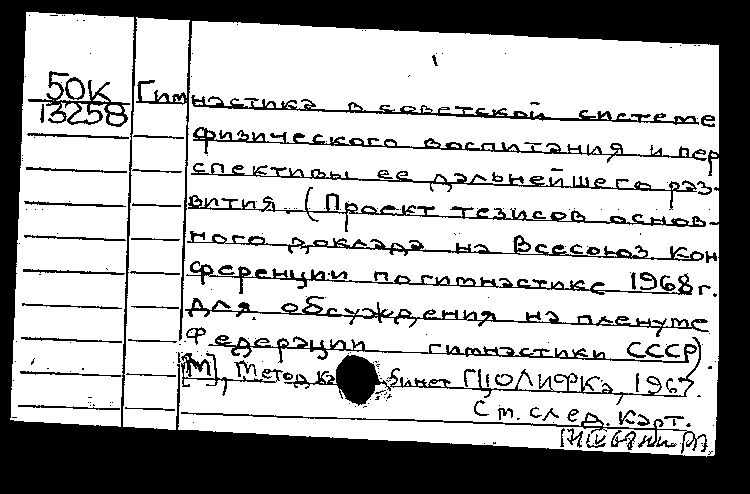 50К
13258
Гимнастика в советской системе
физического воспитания и пер
спективы ее дальнейшего раз-
вития. (Проект тезисов основ-
ного доклада на Всесоюз. кон
ференции по гимнастике 1968 г.
для обсуждения на пленуме
Федерации гимнастики СССР).
[М], Метод. кабинет ГЦОЛИФКа, 1967.
См. след. карт.